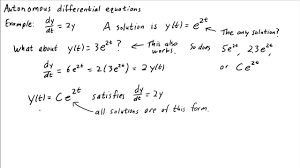 Autonomous differential equations
Example: dy/dt = 2y A solution is y(t) = e^{2t} The only solution?
What about y(t) = 3e^{2t}? This also works. So does 5e^{2t}, 23e^{2t},
dy/dt = 6e^{2t} = 2(3e^{2t}) = 2y(t) or Ce^{2t}
y(t) = Ce^{2t} satisfies dy/dt = 2y
all solutions are of this form.